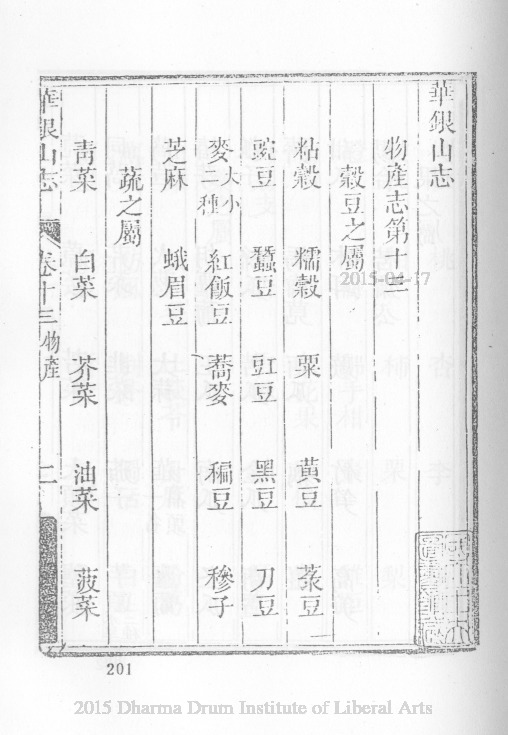 華銀山志
物產志第十三
穀豆之屬
粘穀 糯穀 粟 黃豆 菉豆
豌豆 蠶豆 豇豆 黑豆 刀豆
麥大小二種 紅飯豆 蕎麥 稨豆 穇子
芝麻 蛾眉豆
蔬之屬
青菜 白菜 芥菜 油菜 菠菜
華銀山志 卷十三 物產 一
2015-04-17
201
2015 Dharma Drum Institute of Liberal Arts